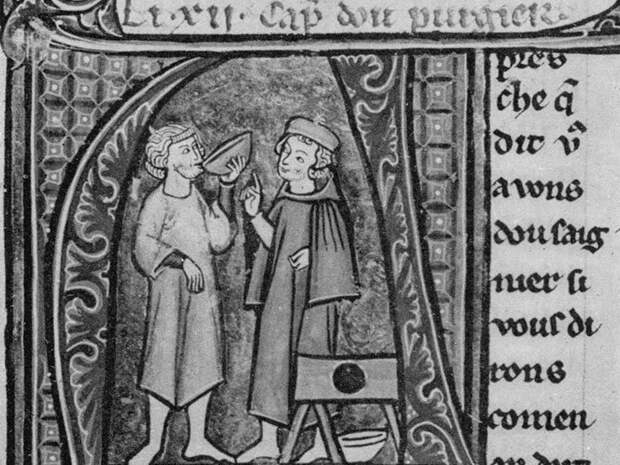 Li·xij· Cap̄ dou purgier
Apres
che q̄
dit v̄
avons
dou saig
nier si
vous di
rons
comen